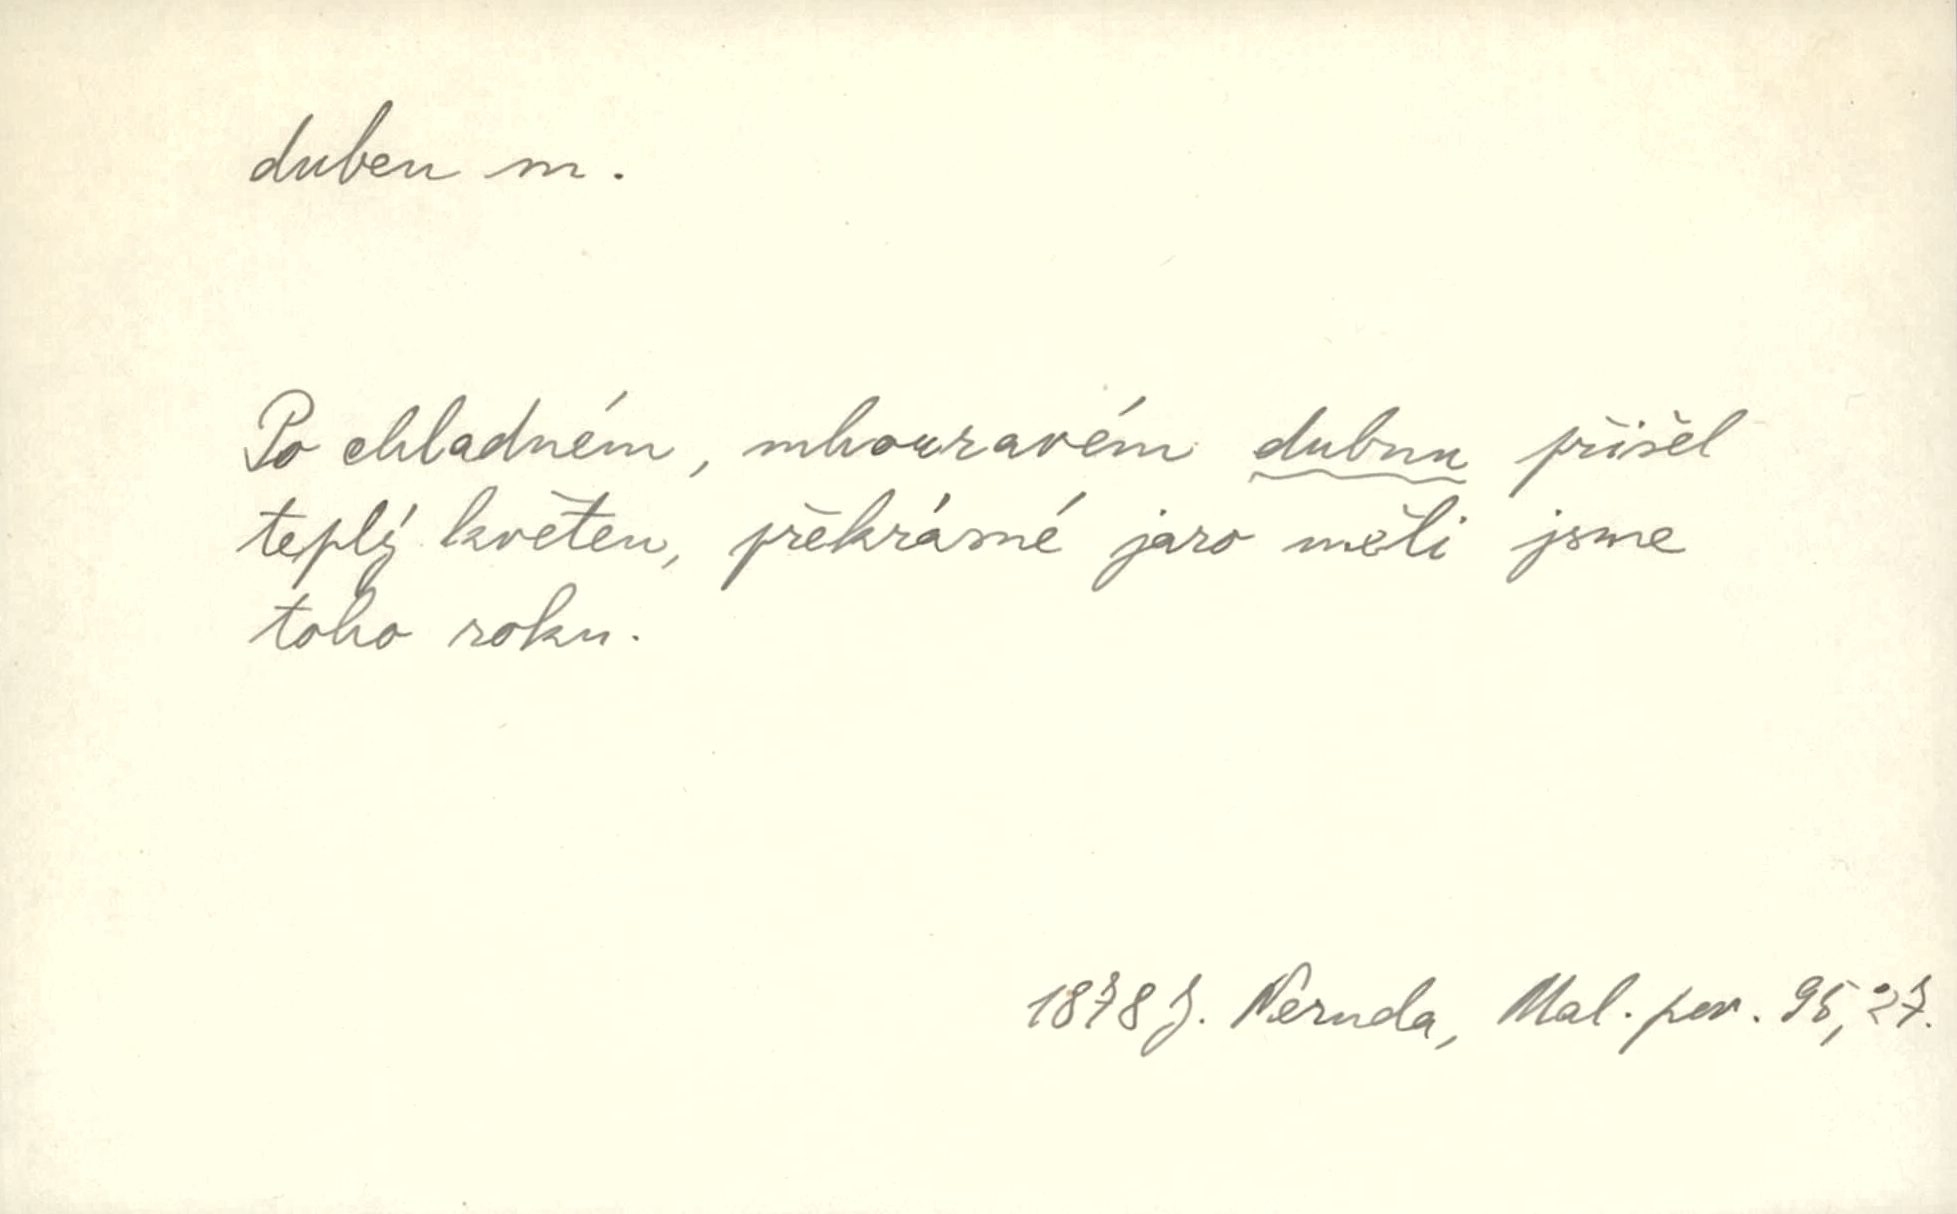 duben m.
Po chladném, mhouravém dubnu přišel
teplý květen, překrásné jaro měli jsme
toho roku.
1878 J. Neruda, Mal. pov. 95, 27.